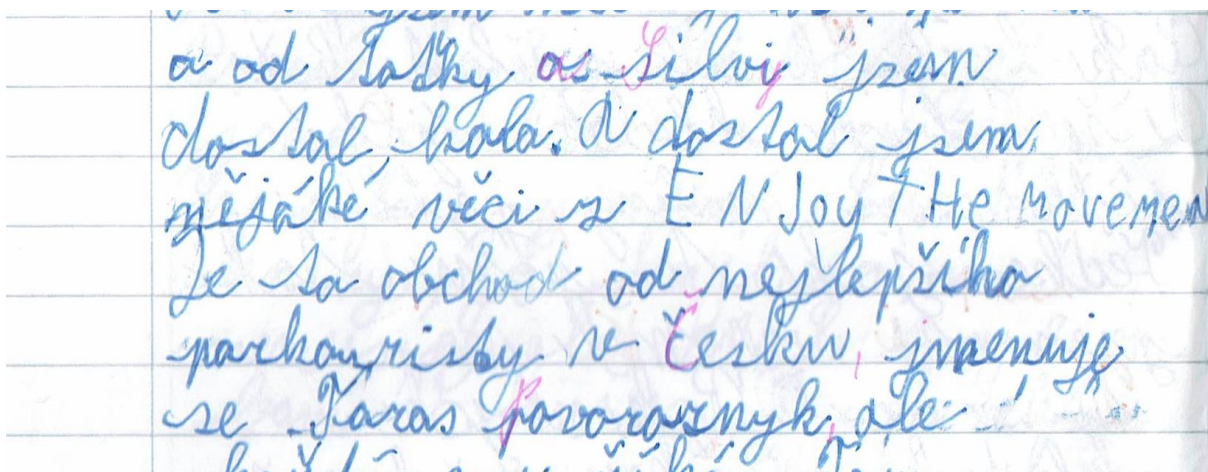 a od taťky a Silvy jsem
dostal, kola. A dostal jsem
nějáké věci z ENJoy THe Movemen
Je to obchod od nejlepšího
parkouristy v Česku, jmenuje
se Taras Povoroznyk, ale